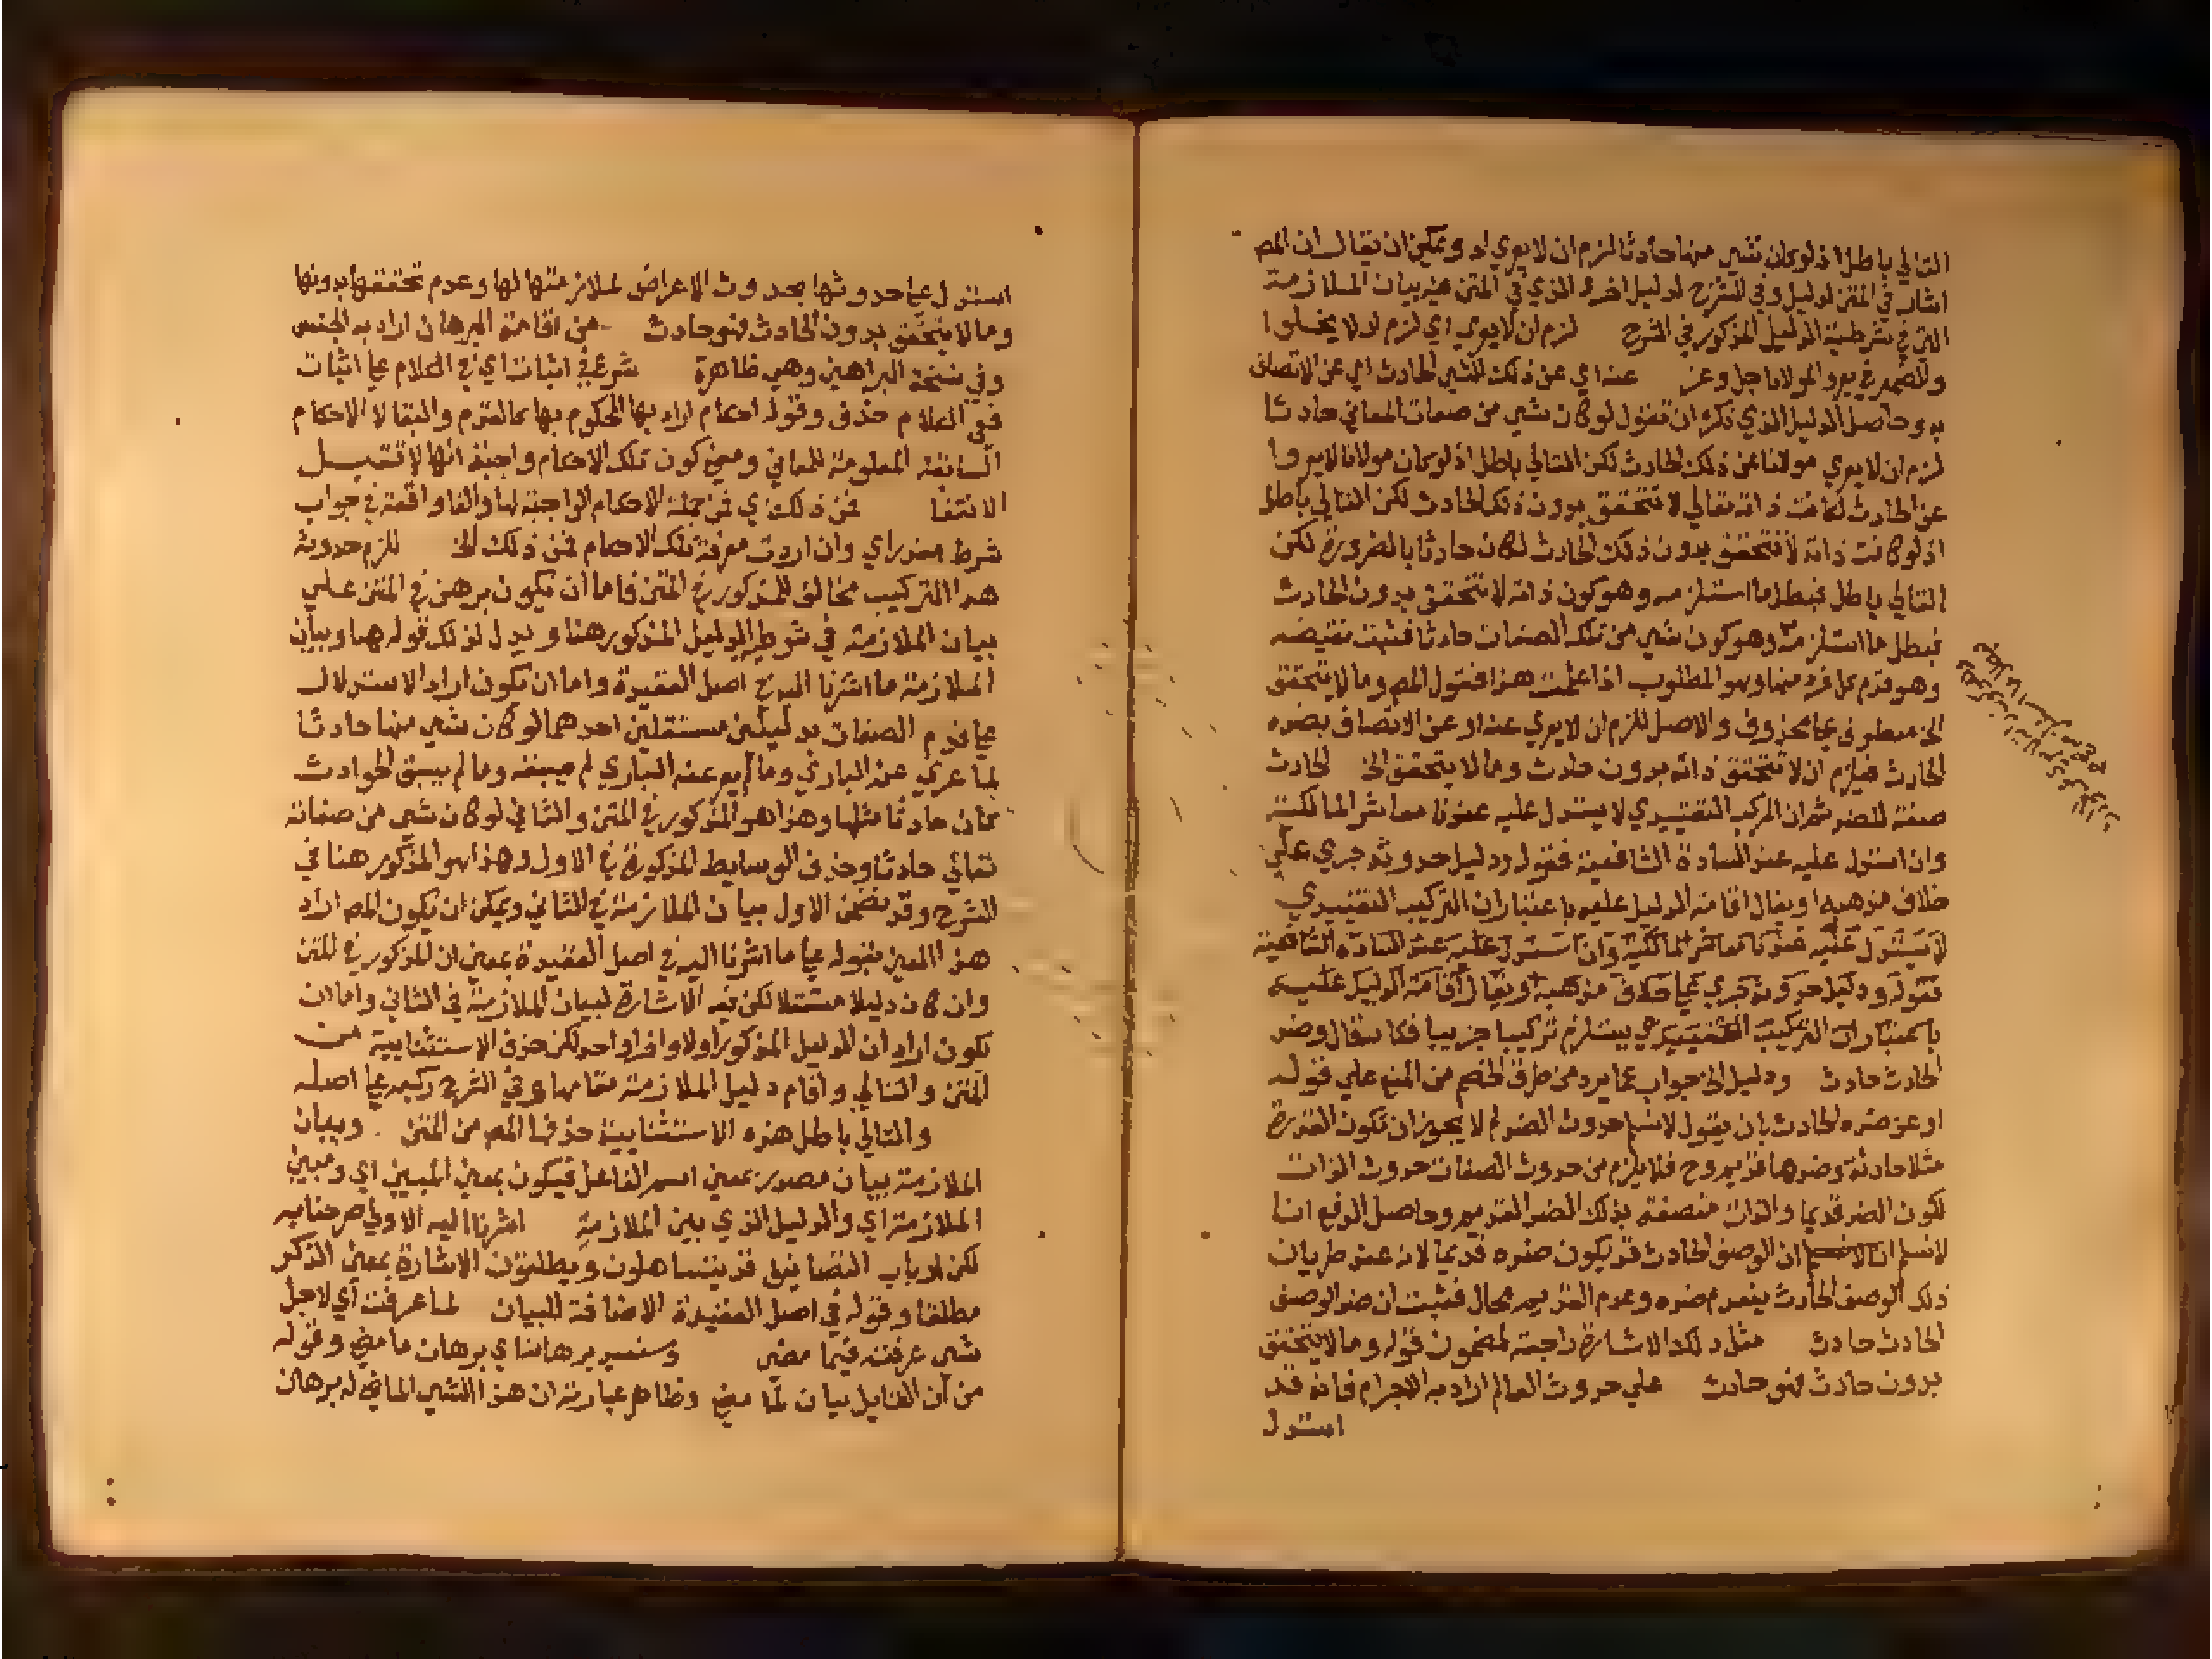 التالي باطل اذ لو كان شي منها حادثا لزم ان لا يعري او ويمكن ان يقال ان المص
اشار في المتن لدليل وفي الشرح لدليل اخر والذي في المتن فيه بيان الملازمة
التي في شرطية الدليل المذكور في الشرح لزم ان لا يعري اي لزم ان لا يخلوا
والضمير في يعرو المولانا جل وعز عنه اي عن ذلك الشي الحادث اي عن الاتصاف
به وحاصل الدليل الذي ذكره ان تقول لو كان شي من صفات المعاني حادثا
لزم ان لا يعري مولانا عن ذلك الحادث لكن التالي باطل اذ لو كان مولانا لا يعروا
عن الحادث لكانت ذاته تعالي لا تتحقق بدون ذلك الحادث لكن التالي باطل
اذ لو كانت ذاته لا تتحقق بدون ذلك الحادث لكان حادثا بالضرورة لكن
التالي باطل فبطل ما استلزمه وهو كون ذاته لا تتحقق بدون الحادث
فبطل ما استلزمه وهو كون شي من تلك الصفات حادثا فثبت نقيضه
وهو قدم كل فرد منها وهو المطلوب اذا علمت هذا فقول المص وما لا يتحقق
الخ معطوف علي محذوف والاصل للزم ان لا يعري عنه او عن الاتصاف بضده
الحادث فيلزم ان لا تتحقق ذاته بدون حادث وما لا يتحقق الخ الحادث
صفة للضد ثم ان المركب التقييدي لا يستدل عليه عندنا معاشر المالكية
وان استدل عليه عند السادة الشافعية فقوله ودليل حدوثه جري علي
خلاف مذهبه او يقال اقامة الدليل عليه باعتبار ان التركيب التقييدي
لا يستدل عليه عندنا معاشر المالكية وان استدل عليه عند السادة الشافعية
فقوله ودليل حدوثه جري علي خلاف مذهبه او يقال اقامة الدليل عليه
باعتبار ان التركيب التقييدي يستلزم تركيبا جزييا فكانه قال وضد
الحادث حادث ودليل الخ جواب عما يرد من طرف الخصم من المنع علي قوله
او عن ضده الحادث بان يقول لا نسلم حدوث الضد لم لا يجوز ان تكون القدرة
مثلا حادثة وضدها قديم وح فلا يلزم من حدوث الصفات حدوث الذات
لكون الضد قديما والذات متصفة بذلك الضد القديم وحاصل الدفع انا
لا نسلم ان الوصف الحادث قد يكون ضده قديما لانه عند طريان
ذلك الوصف الحادث ينعدم ضده وعدم القديم محال فثبت ان ضد الوصف
الحادث حادث مثل ذلك الاشارة راجعة لمضمون قوله وما لا يتحقق
بدون حادث فهو حادث علي حدوث العالم اراد به الاجرام فانه قد
استدل
استدل علي حدوثها بحدوث الاعراض لملازمتها لها وعدم تحققها بدونها
وما لا يتحقق بدون الحادث فهو حادث من اقامة البرهان اراد به الجنس
وفي نسخة البراهين وهي ظاهرة شرع في اثبات اي في الكلام علي اثبات
ففي الكلام حذف وقوله احكام اراد بها المحكوم بها كالقدم والبقا لا الاحكام
السابقة المعلومة للمعاني ومعني كون تلك الاحكام واجبة انها لا تقبل
الانتفا فمن ذلك اي فمن جملة الاحكام الواجبة لها والفا واقعة في جواب
شرط مقدر اي وان اردت معرفة تلك الاحكام فمن ذلك الخ للزم حدوثه
هذا التركيب مخالف للمذكور في المتن فاما ان يكون برهن في المتن علي
بيان الملازمة في شرط الدليل المذكور هنا ويدل لذلك قوله هنا وبيان
الملازمة ما اشرنا اليه في اصل العقيدة واما ان تكون اراد الاستدلال
علي قدم الصفات بدليلين مستقلين احدهما لو كان شي منها حادثا
لما عري عنه الباري وما لم يعر عنه الباري لم يسبقه وما لم يسبق الحوادث
كان حادثا مثلها وهذا هو المذكور في المتن والثاني لو كان شي من صفاته
تعالي حادثا وحذف الوسايط المذكورة في الاول وهذا هو المذكور هنا في
الشرح وقد تضمن الاول بيان الملازمة في الثاني ويمكن ان يكون المص اراد
هذا المعني بقوله علي ما اشرنا اليه في اصل العقيدة بمعني ان المذكور في المتن
وان كان دليلا مستقلا لكن فيه الاشارة لبيان الملازمة في الثاني واما ان
يكون اراد ان الدليل المذكور اولا وافراد واحد لكن حذف الاستثنايية من
المتن والتالي واقام دليل الملازمة مقامها وفي الشرح ركبه علي اصله
والتالي باطل هذه الاستثنايية حذفها المص من المتن وبيان
الملازمة بيان مصدر بمعني اسم الفاعل فيكون بمعني المبين اي ومبين
الملازمة اي والدليل الذي بين الملازمة اشرنا اليه الاولي صرحنا به
لكن ارباب التصانيف قد يتساهلون ويطلقون الاشارة بمعني الذكر
مطلقا وقوله في اصل العقيدة الاضافة للبيان لما عرفت اي لاجل
شي عرفته فيما مضي وسنعيد برهاننا اي برهان ما مضي وقوله
من ان القابل بيان لما مضي وظاهر عبارته ان هذا الشي الماضي له برهان